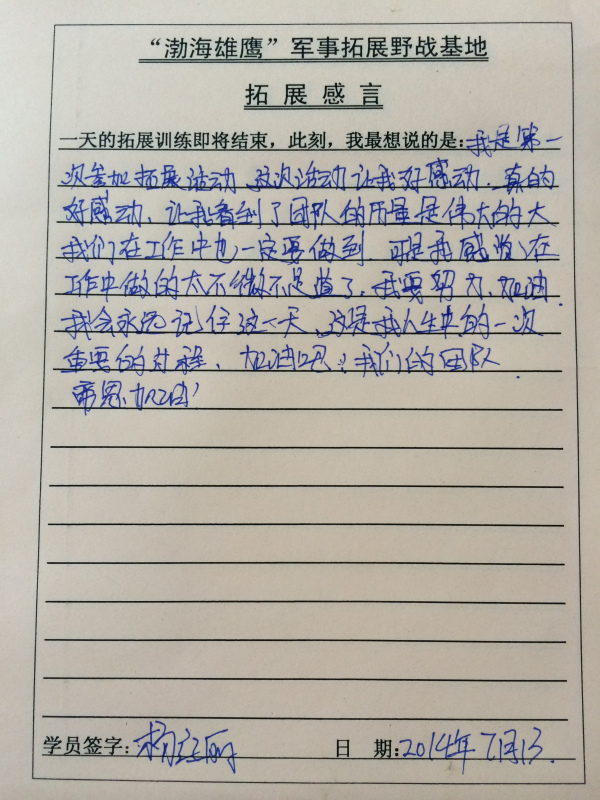 “渤海雄鹰”军事拓展野战基地
拓展感言
一天的拓展训练即将结束，此刻，我最想说的是：我是第一
次参加拓展活动、这次活动让我好感动、真的
好感动、让我看到了团队的力量是伟大的大
我们在工作中也一定要做到、可是我感觉在
工作中做的太不微不足道了、我要努力、加油、
我会永远记住这一天、这是我人生中的一次
重要的、加油吧！我们的团队、
加油！
学员签字：杨立丽 日 期：2014年7月13.